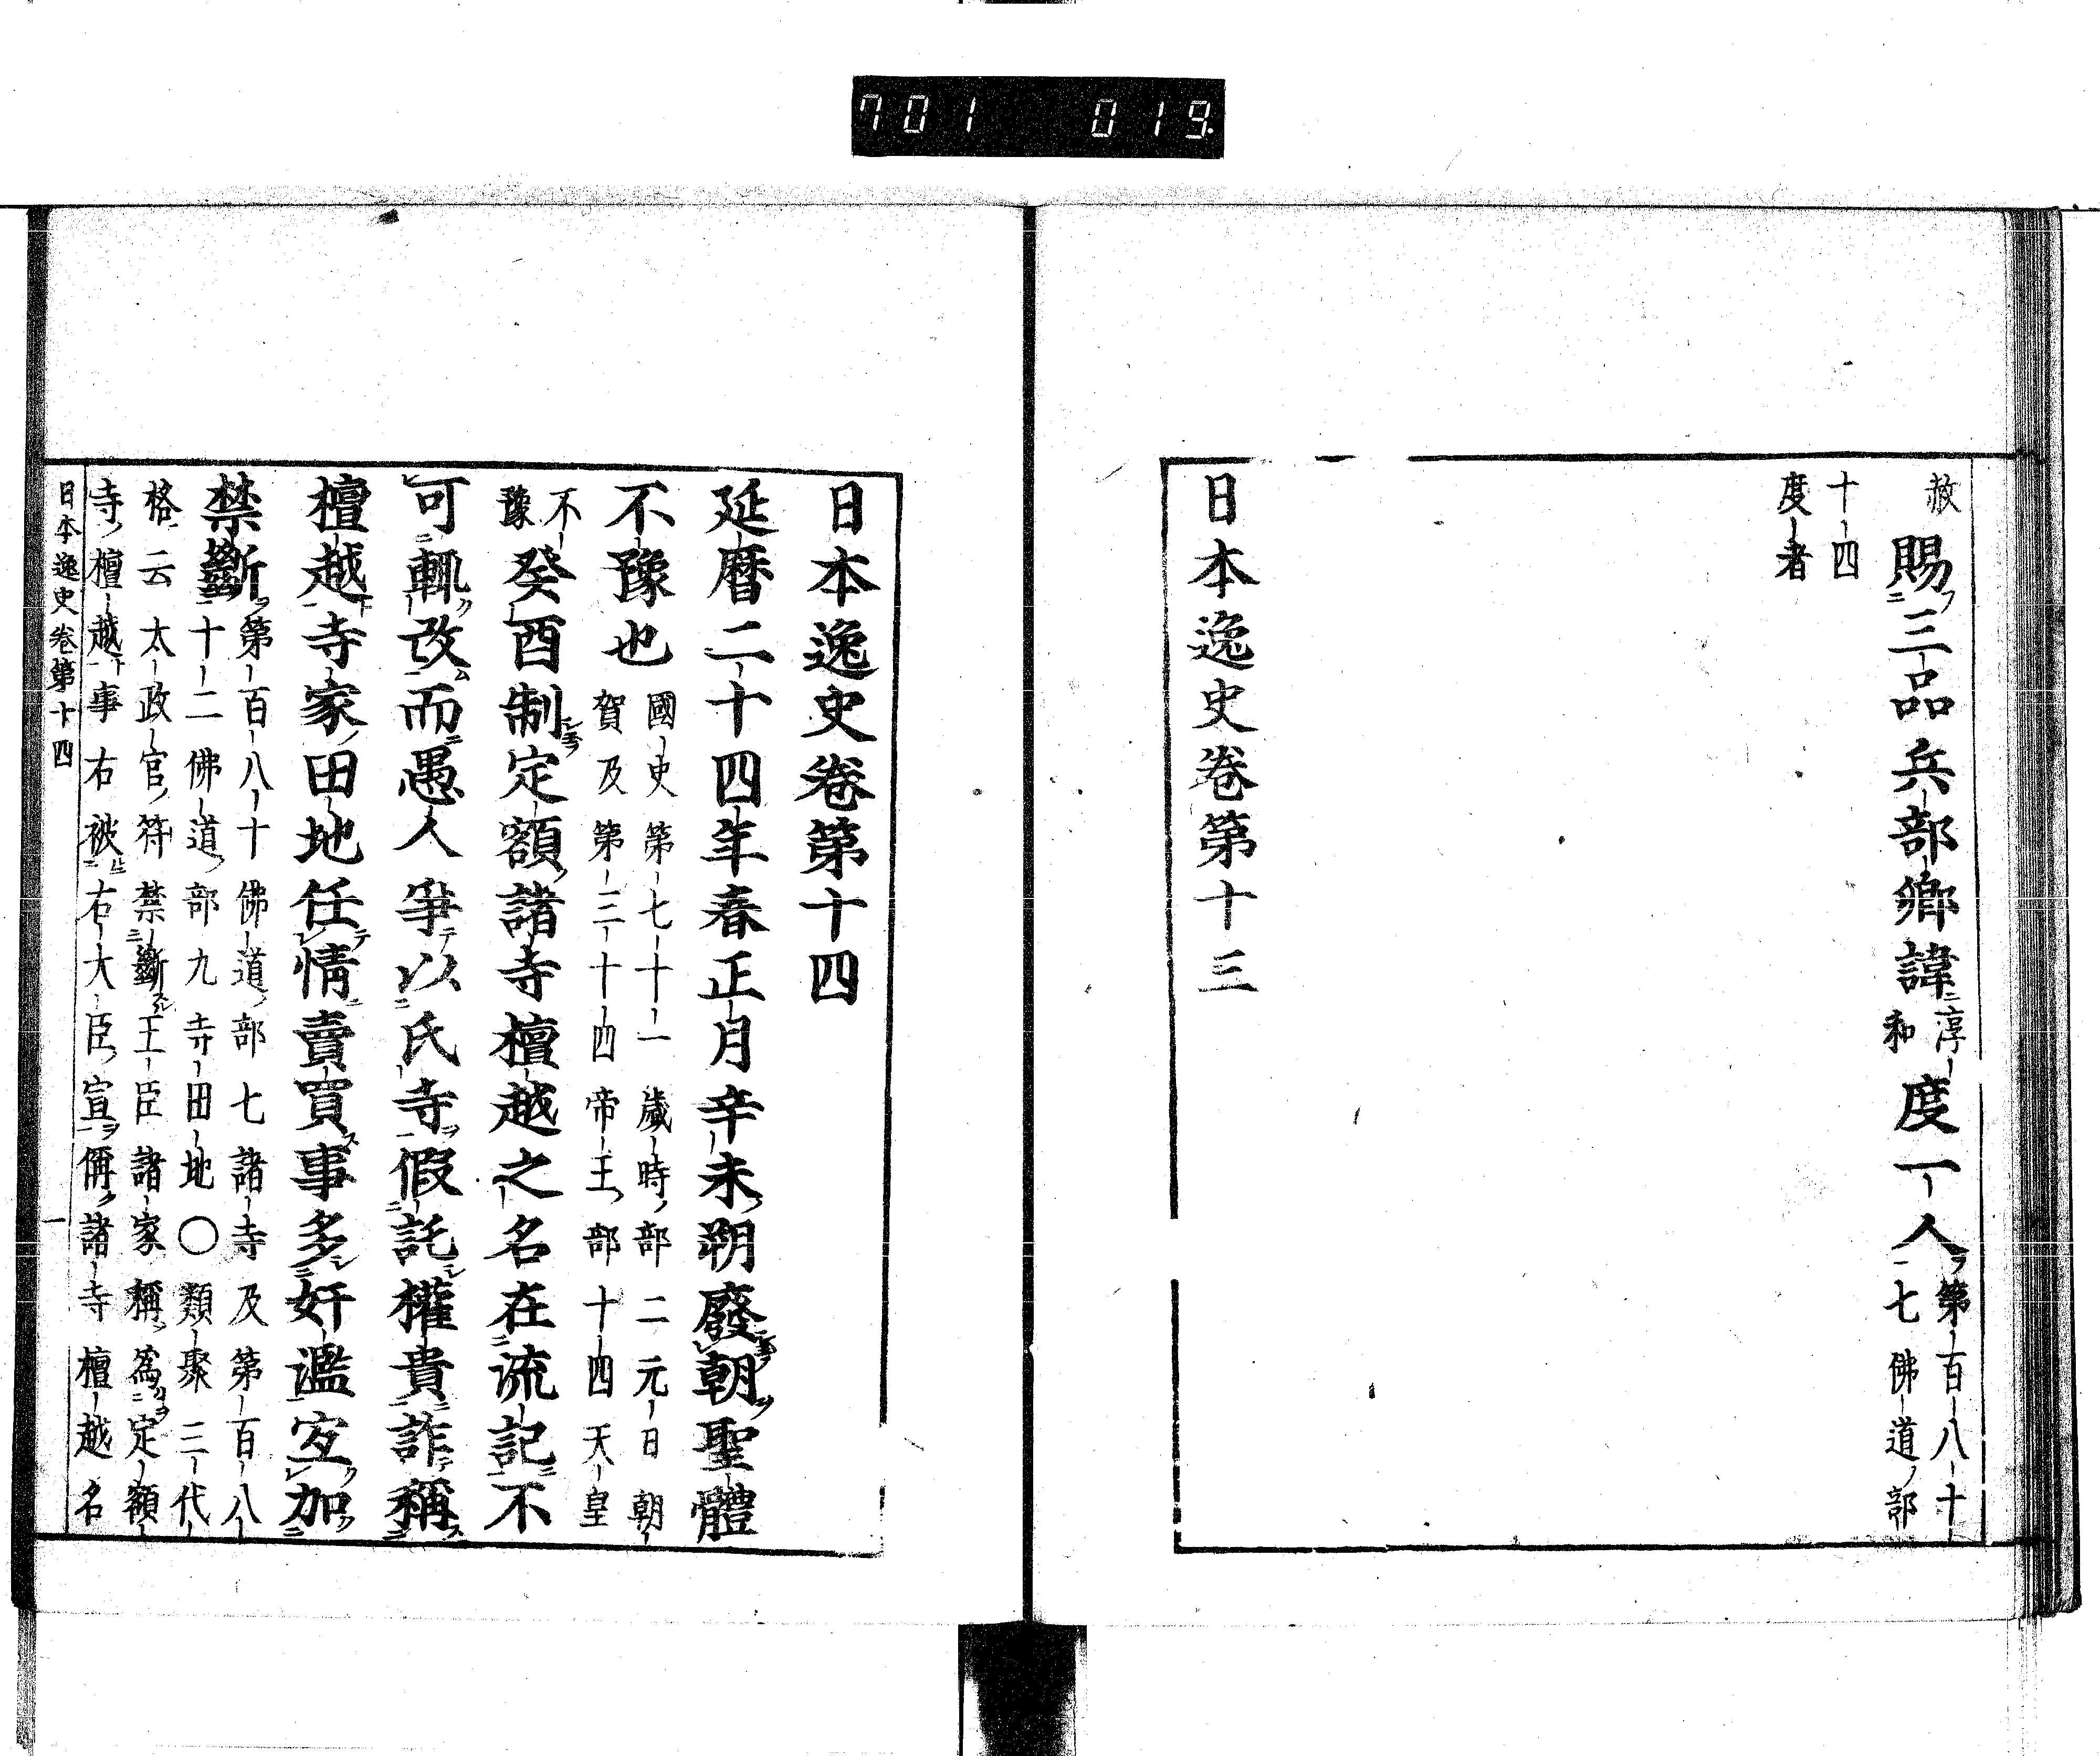 701 019
赦賜三品兵部卿諱淳和度一人第百八十七佛道部
十四度者
日本逸史卷第十三
日本逸史卷第十四
延曆二十四年春正月辛未朔廢朝聖體
不豫也國史第七十一歲時部二元日朝賀及第三十四帝王部十四天皇
不豫癸酉制定額諸寺檀越之名在流記不
可輙改而愚人爭以氏寺假託權貴詐稱
檀越寺家田地任情賣買事多奸濫宜加
禁斷第百八十佛道部七諸寺及第百八十二佛道部九寺田地〇類聚三代
格云太政官符禁斷王臣諸家稱爲定額
寺檀越事右被右大臣宣偁諸寺檀越名
日本逸史卷第十四 一